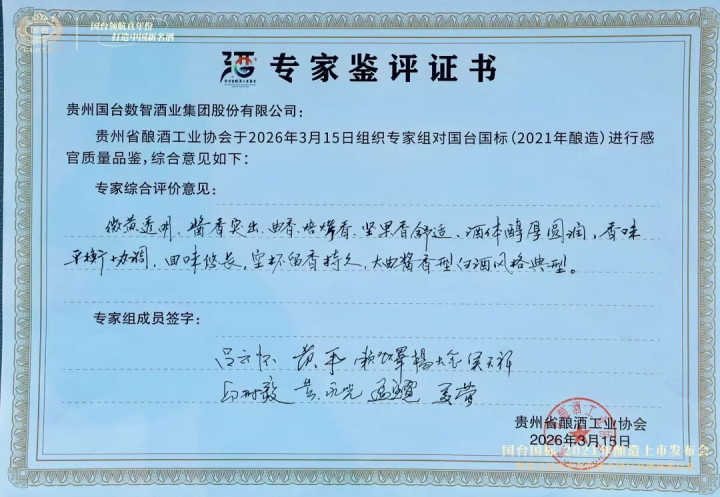 国台领航真年份
打造中国新名酒
酒 专家鉴评证书
贵州国台数智酒业集团股份有限公司：
贵州省酿酒工业协会于2026年3月15日组织专家组对国台国标（2021年酿造）进行感
官质量品鉴，综合意见如下：
专家综合评价意见：
微黄透明、酱香突出、曲香、焙烤香、坚果香舒适、酒体醇厚圆润，香味
平衡协调，回味悠长，空杯留香持久，大曲酱香型白酒风格典型。
专家组成员签字：
吕云怀 黄平
贵州省酿酒工业协会
2026年3月15日
国台国标·2021年酿造上市发布会